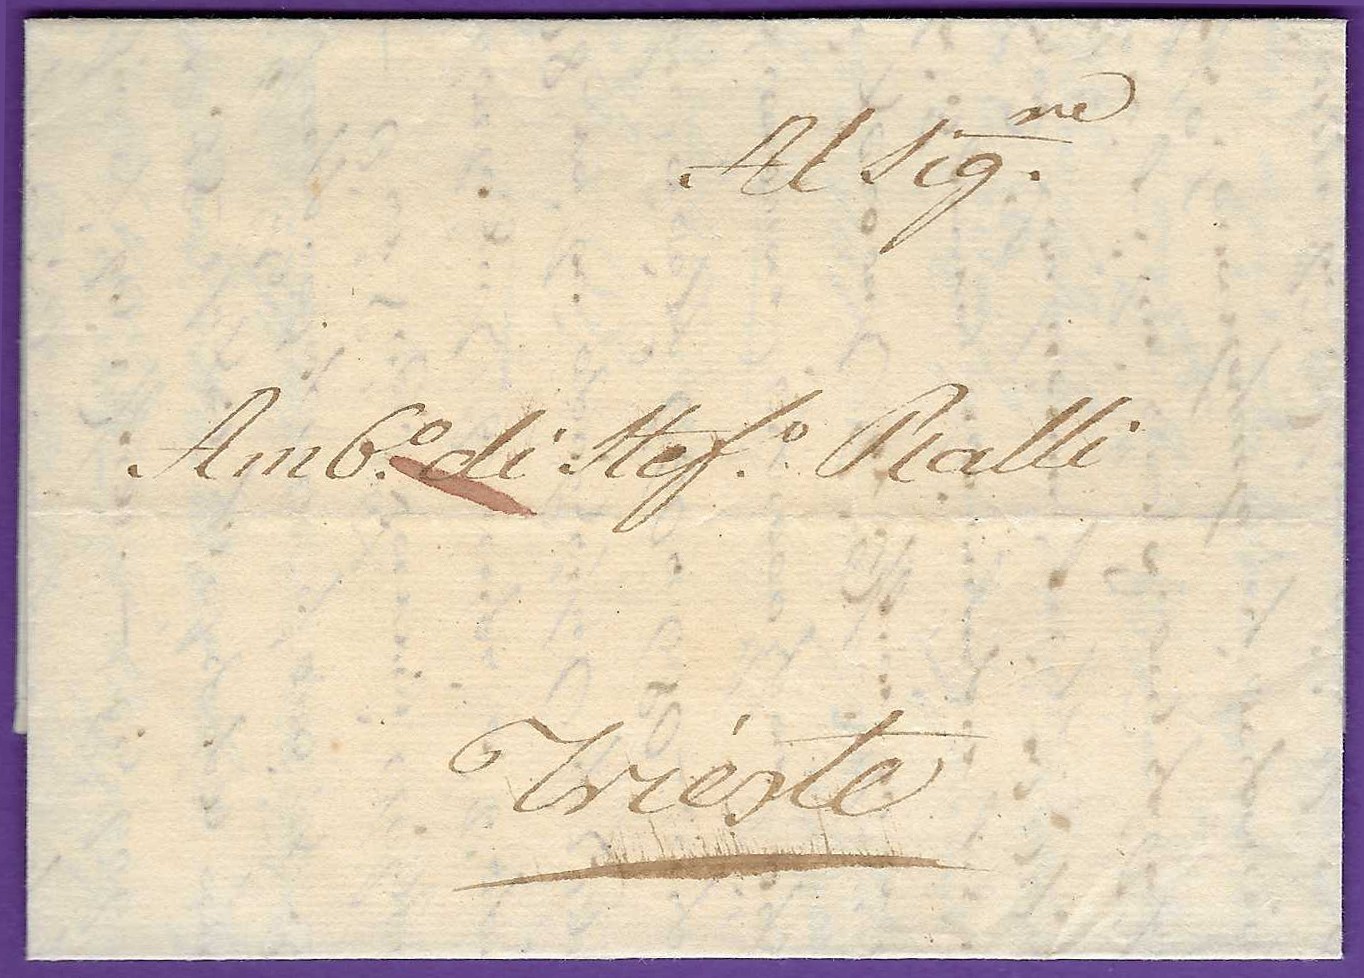 Al Sig.ne
Amb.o di Stef.o Ralli
Trieste